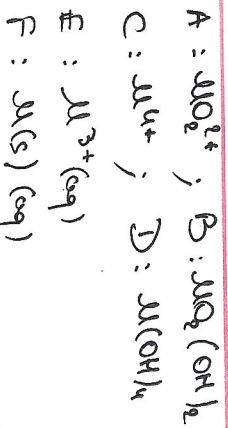 A : MO₂²⁺ ; B : MO₂(OH)₂
C : M⁴⁺ ; D : M(OH)₄
E : M³⁺(aq)
F : M(s) (aq)